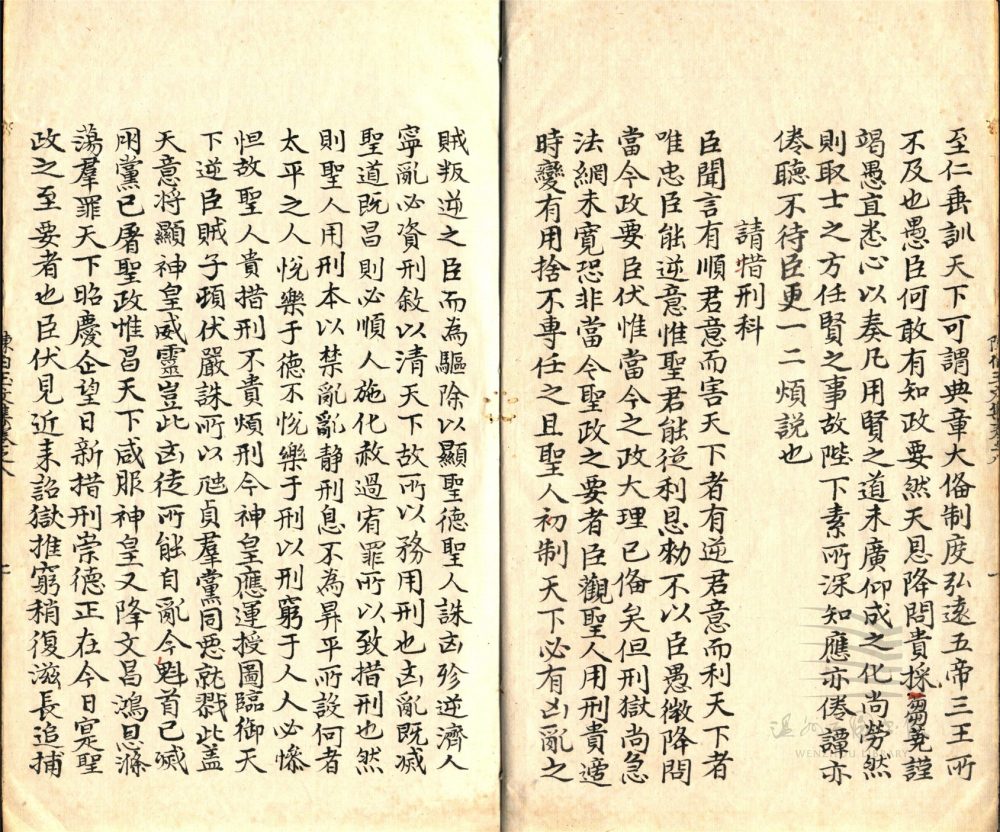 至仁垂訓天下可謂典章大俻制度弘遠五帝三王所
不及也愚臣何敢有知政要然天恩降問貴採芻蕘謹
竭愚直悉心以奏凡用賢之道未廣仰成之化尚勞然
則取士之方任賢之事故陛下素所深知應亦倦譚亦
倦聽不待臣更一二煩説也
請措刑科
臣聞言有順君意而害天下者有逆君意而利天下者
唯忠臣能逆意惟聖君能從利恩勑不以臣愚微降問
當今政要臣伏惟當今之政大理已俻矣但刑獄尚急
法網未寛恐非當今聖政之要者臣觀聖人用刑貴適
時變有用捨不專任之且聖人初制天下必有凶亂之
賊叛逆之臣而為驅除以顯聖德聖人誅凶殄逆濟人
寧亂必資刑殺以清天下故所以務用刑也凶亂既滅
聖道既昌則必順人施化赦過宥罪所以致措刑也然
則聖人用刑本以禁亂亂静刑息不為昇平所設何者
太平之人悅樂于德不悅樂于刑以刑窮于人人必慘
怛故聖人貴措刑不貴煩刑今神皇應運授圖臨御天
下逆臣賊子頓伏嚴誅所以虺貞羣黨同惡就戮此盖
天意將顯神皇威靈豈此凶徒所能自亂今魁首已滅
朋黨已屠聖政惟昌天下咸服神皇又降文昌鴻恩滌
蕩羣罪天下昭慶企望日新措刑崇德正在今日寔聖
政之至要者也臣伏見近来詔獄推窮稍復滋長追捕
WENZHOU LIBRARY